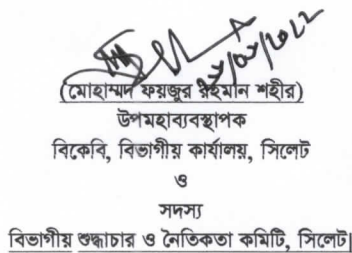 (মোহাম্মদ ফয়জুর রহমান শহীর)
উপমহাব্যবস্থাপক
বিকেবি, বিভাগীয় কার্যালয়, সিলেট
ও
সদস্য
বিভাগীয় শুদ্ধাচার ও নৈতিকতা কমিটি, সিলেট।